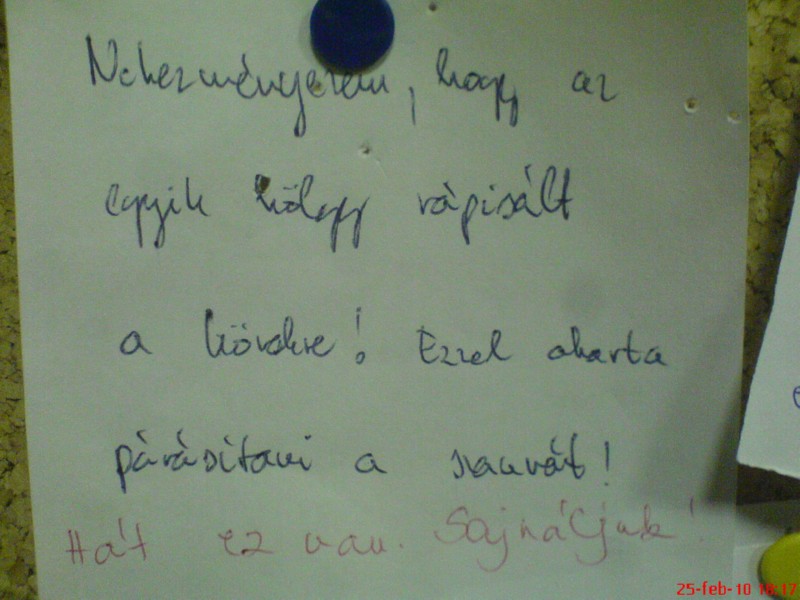 Nehezményezem, hogy az
egyik hölgy rápisált
a kövekre! Ezzel akarta
párásítani a szaunát!
Hát ez van. Sajnáljuk!
25-feb-10 18:17